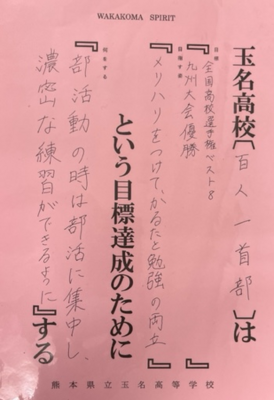 WAKAKOMA SPIRIT
玉名高校〔百人一首部〕は
目標
『全国高校選手権ベスト8
九州大会優勝
目指す姿
『メリハリをつけて、かるたと勉強の両立』
という目標達成のために
何をする
『部活動の時は部活に集中し、
濃密な練習ができるように』する
熊本県立玉名高等学校